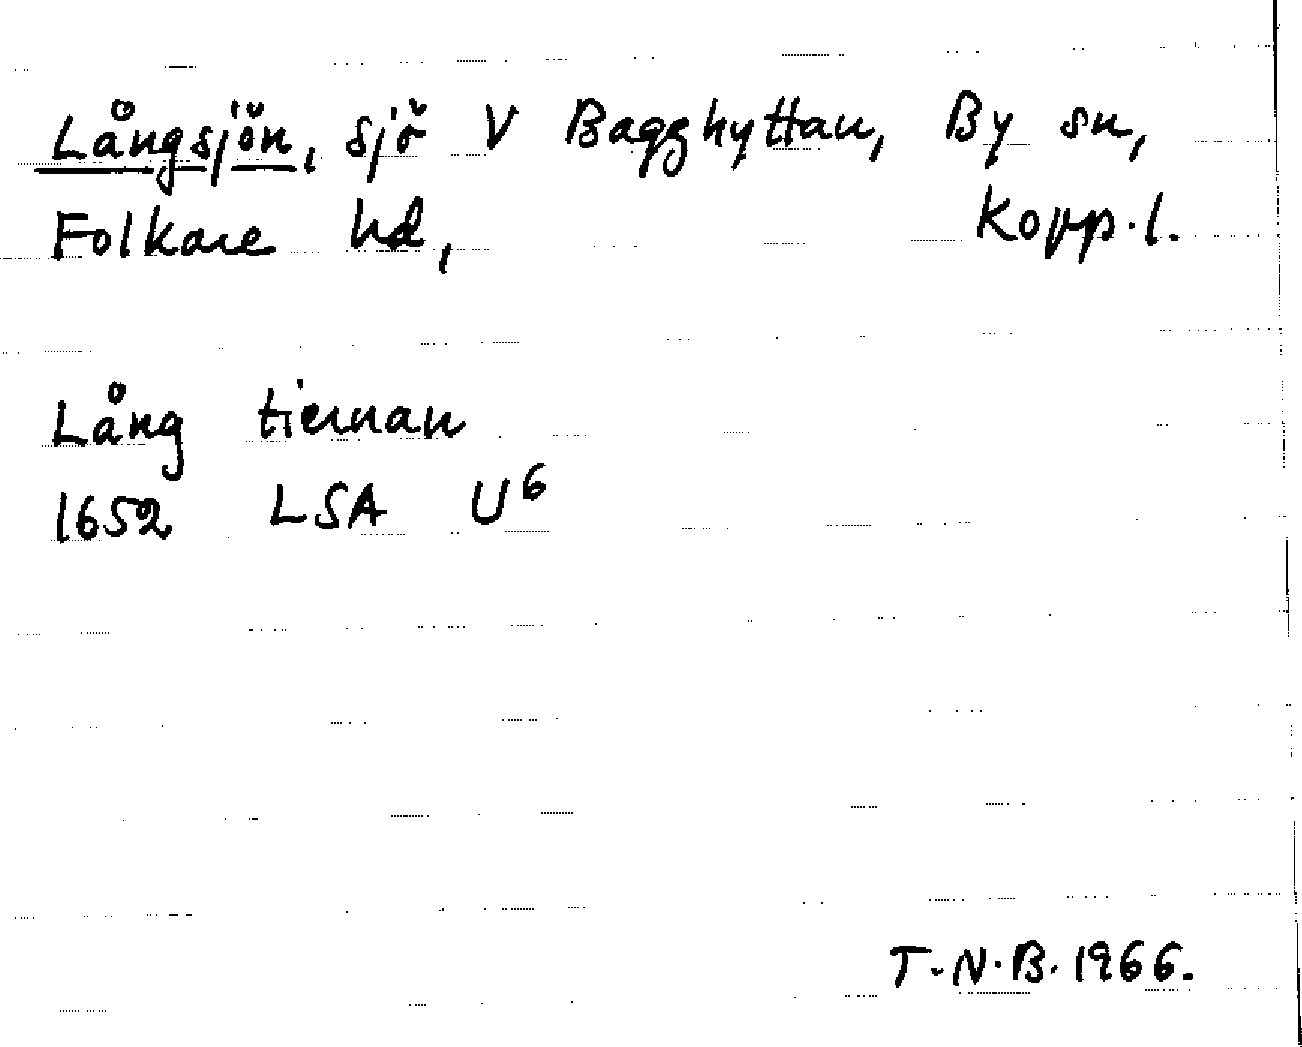 Långsjön, sjö V Bagghyttan, By sn,
Folkare hd, Kopp.l.
Lång tiernan
1652 LSA U6
T.N.B. 1966.